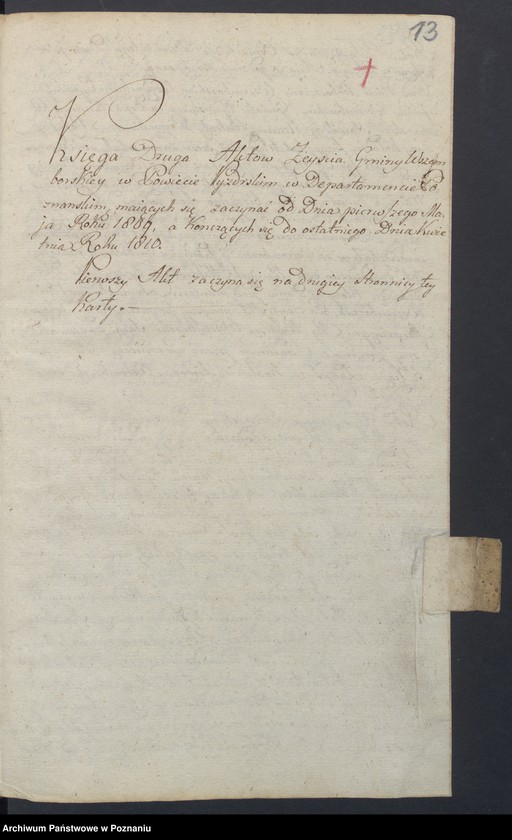 13
Księga Druga Aktow Zeyscia Gminy Wszem
borskiey w Powiecie Pyzdrskim w Departamencie Po
znanskim, maiących się zaczynać od Dnia pierwszego Ma,
ja Roku 1809, a kończących się do ostatniego Dnia Kwie
tnia Roku 1810.
Pierwszy Akt zaczyna się na drugiey Stronnicy tey
Karty.—
Archiwum Państwowe w Poznaniu